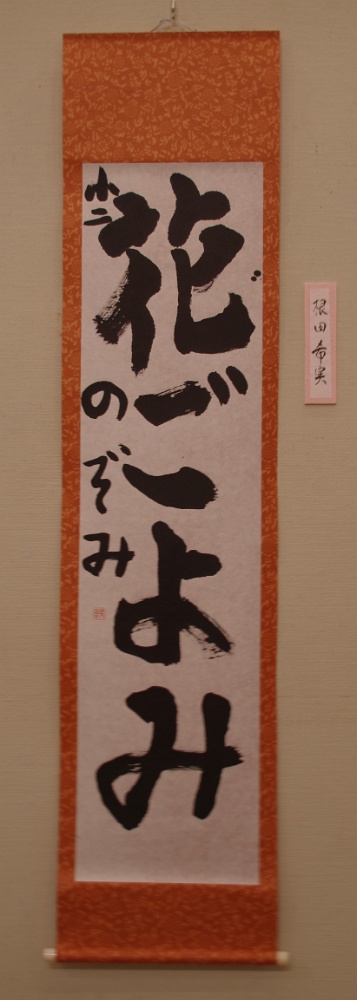 花ごよみ
小二 のぞみ
根田希実